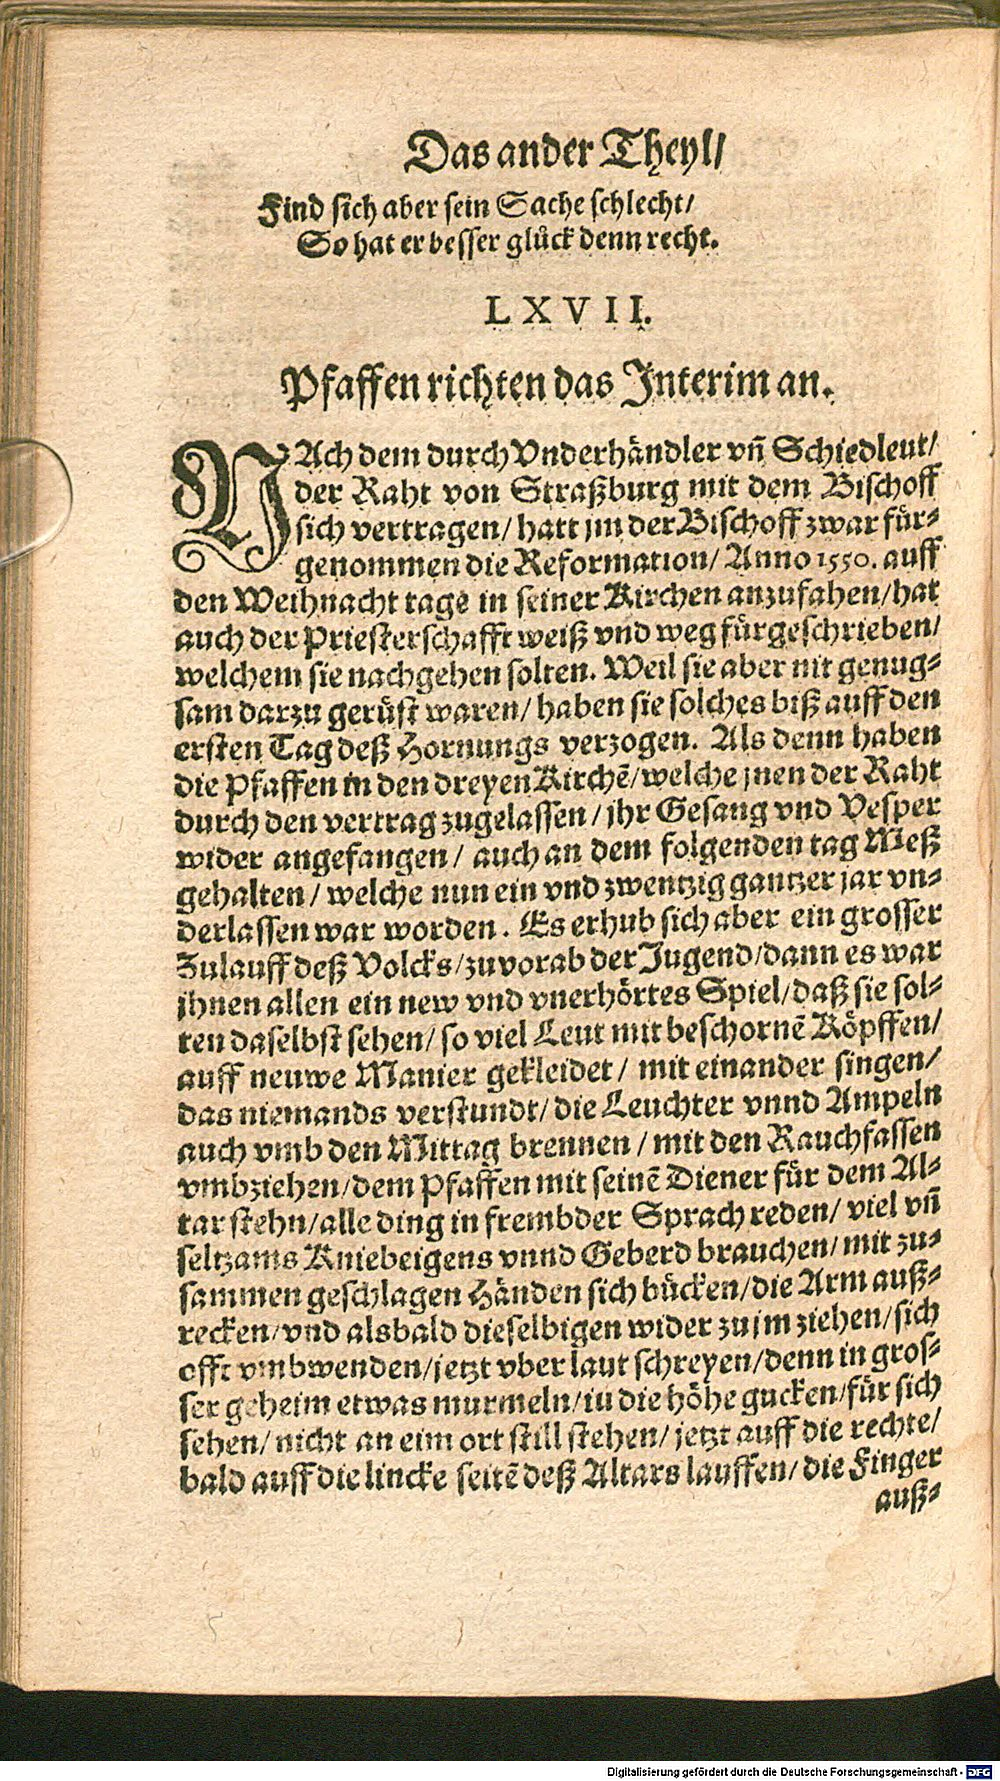 Das ander Theyl/
Find sich aber sein Sache schlecht/
So hat er besser glück denn recht.
LXVII.
Pfaffen richten das Interim an.
NAch dem durch Vnderhändler vñ Schiedleut/
der Raht von Straßburg mit dem Bischoff
sich vertragen/ hatt jm der Bischoff zwar für-
genommen die Reformation/ Anno 1550. auff
den Weihnacht tage in seiner Kirchen anzufahen/ hat
auch der Priesterschafft weiß vnd weg fürgeschrieben/
welchem sie nachgehen solten. Weil sie aber nit genug-
sam darzu gerüst waren/ haben sie solches biß auff den
ersten Tag deß Hornungs verzogen. Als denn haben
die Pfaffen in den dreyen Kirchẽ/ welche jnen der Raht
durch den vertrag zugelassen/ jhr Gesang vnd Vesper
wider angefangen/ auch an dem folgenden tag Meß
gehalten/ welche nun ein vnd zwentzig gantzer jar vn-
derlassen war worden. Es erhub sich aber ein grosser
Zulauff deß Volcks/ zuvorab der Jugend/ dann es war
jhnen allen ein new vnd vnerhörtes Spiel/ daß sie sol-
ten daselbst sehen/ so viel Leut mit beschornẽ Köpffen/
auff neuwe Manier gekleidet/ mit einander singen/
das niemands verstundt/ die Leuchter vnnd Ampeln
auch vmb den Mittag brennen/ mit den Rauchfassen
vmbziehen/ dem Pfaffen mit seinẽ Diener für dem Al-
tar stehn/ alle ding in frembder Sprach reden/ viel vñ
seltzams Kniebeigens vnnd Geberd brauchen/ mit zu-
sammen geschlagen Händen sich bücken/ die Arm auß-
recken/ vnd alsbald dieselbigen wider zu jm ziehen/ sich
offt vmbwenden/ jetzt vber laut schreyen/ denn in gros-
ser geheim etwas murmeln/ in die höhe gucken/ für sich
sehen/ nicht an eim ort still stehen/ jetzt auff die rechte/
bald auff die lincke seitẽ deß Altars lauffen/ die Finger
auß-
Digitalisierung gefördert durch die Deutsche Forschungsgemeinschaft - DFG